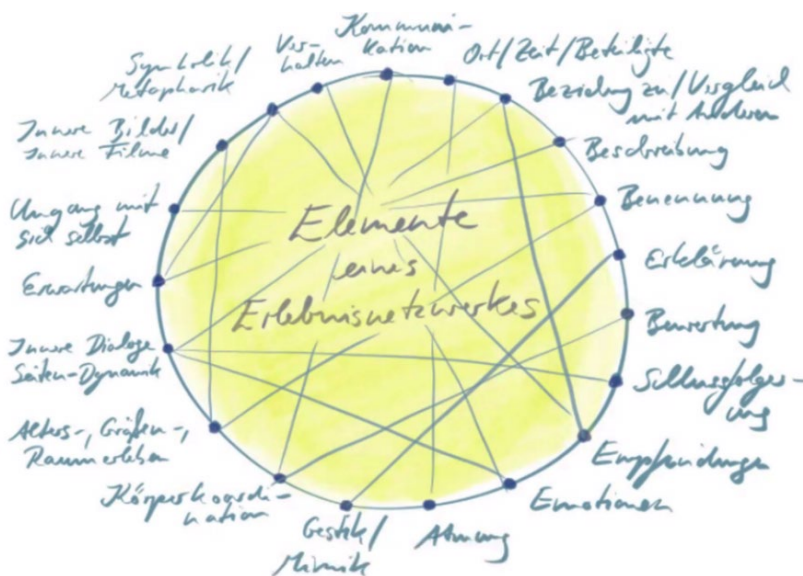 Elemente
eines
Erlebnisnetzwerkes
Kommuni-
kation
Ort/Zeit/Beteiligte
Beziehung zu/Vergleich
mit Anderen
Beschreibung
Benennung
Erklärung
Bewertung
Schlussfolger-
ung
Empfindungen
Emotionen
Atmung
Gestik/
Mimik
Körperkoordi-
nation
Alters-, Größen-,
Raumerleben
Innere Dialoge
Seiten-Dynamik
Erwartungen
Umgang mit
sich selbst
Innere Bilder/
Innere Filme
Symbolik/
Metaphorik
Ver-
halten